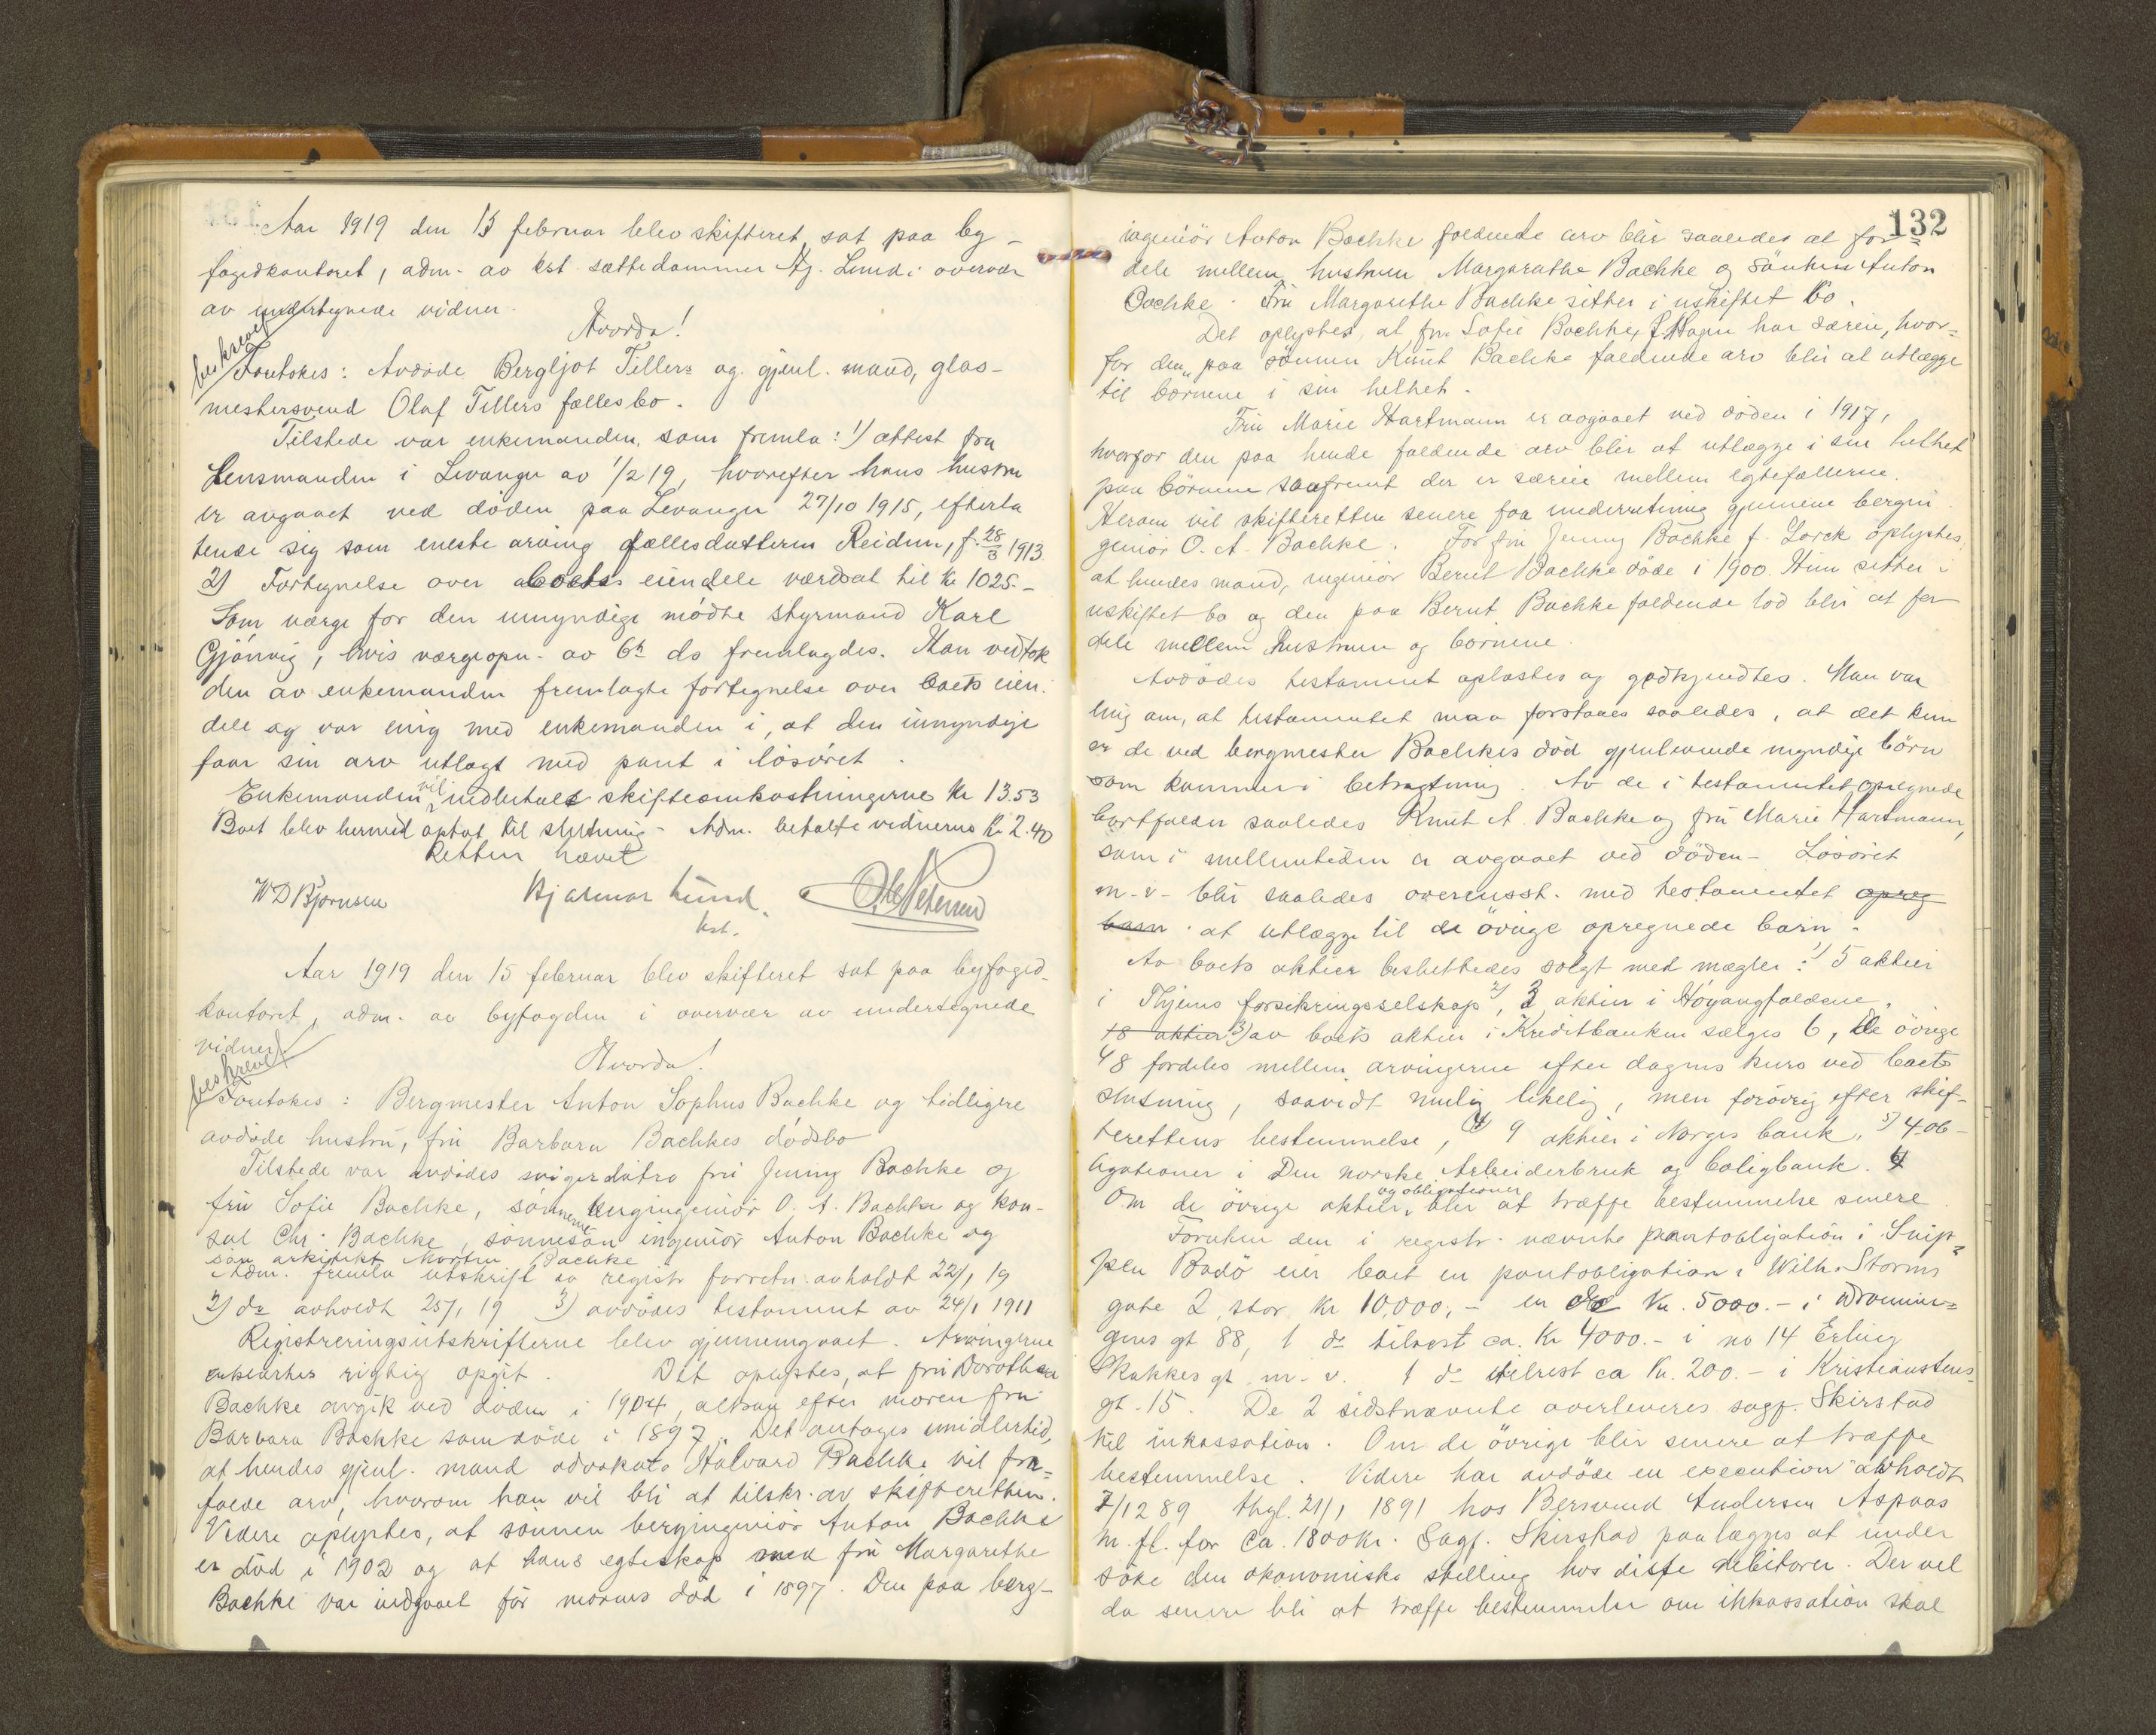 Aar 1919 den 13 februar blev skifteret sat paa by-
fogedkontoret, adm. av kst. sættedommer Hj. Lund i overvær
av undertegnede vidner.
Hvorda!
beskrevet
Foretokes: Avdøde Bergljot Tillers og gjenl. mand, glas-
mestersvend Olaf Tillers fællesbo.
Tilstede var enkemanden, som fremla: 1) attest fra
Lensmanden i Levanger av 1/2 19, hvorefter hans hustru
er avgaaet ved døden paa Levanger 27/10 1915, efterla
tende sig som eneste arving fællesdatteren Reidun, f. 28/3 1913.
2) Fortegnelse over boets eiendele værdsat til kr 1025.-
Som værge for den umyndige mødte styrmand Karl
Gjönvig, hvis værgeopn. av 6te ds fremlagdes. Han vedtok
den av enkemanden fremlagte fortegnelse over boets eien-
dele og var enig med enkemanden i, at den umyndige
faar sin arv utlagt med pant i løsøret.
Enkemanden vil indbetale skifteomkostningerne kr 13.53
Boet blev hermed optat til slutning. Adm. betalte vidnerne kr 2.40
Retten hævet
W D Bjørnsen Hjalmar Lund. Ole Petersen
kst.
Aar 1919 den 15 februar blev skifteret sat paa byfoged-
kontoret, adm. av byfogden i overvær av undertegnede
vidner.
Hvorda!
beskrevet
Foretokes: Bergmester Anton Sophus Bachke og tidligere
avdøde hustru, fru Barbara Bachkes dødsbo
Tilstede var avdødes svigerdøtre fru Jenny Bachke og
fru Sofie Bachke, sønnerne bergingeniør O. A. Bachke og kon-
sul Chr. Bachke, sønnesøn ingeniør Anton Bachke og
søn arkitekt Morten Bachke
Adm. fremla utskrift av registr. forretn. avholdt 22/1 19
2) do avholdt 25/1 19 3) avdødes testament av 24/1 1911
Registreringsutskrifterne blev gjennemgaaet. Arvingerne
erklærtes rigtig opgit. Det oplystes, at fru Dorothea
Bachke avgik ved døden i 1904, altsaa efter moren fru
Barbara Bachke som døde i 1897. Det antages imidlertid,
at hendes gjenl. mand advokat Halvard Bachke vil fra-
falde arv, hvorom han vil bli at tilskr. av skifteretten.
Videre oplystes, at sønnen bergingeniør Anton Bachke
er død i 1902 og at hans egteskap med fru Margarethe
Bachke var indgaaet før morens død i 1897. Den paa berg-
132
ingeniör Anton Bachke faldende arv blir saaledes at for-
dele mellem hustruen Margarethe Bachke og sönnen Anton
Bachke. Fru Margarethe Bachke sitter i uskiftet bo.
Det oplystes, at fru Sofie Bachke f. Hagen har særeie, hvor-
for den paa sönnen Knut Bachke faldende arv blir at utlægge
til börnene i sin helhet.
Fru Marie Hartmann er avgaaet ved døden i 1917,
hvorfor den paa hende faldende arv blir at utlægge i sin helhet
paa börnene saafremt der er særeie mellem egtefællerne.
Herom vil skifteretten senere faa underretning gjennem bergin
geniör O. A. Bachke. For fru Jenny Bachke f. Lorck oplystes,
at hendes mand, ingeniör Bernt Bachke döde i 1900. Hun sitter i
uskiftet bo og den paa Bernt Bachke faldende lod blir at for
dele mellem hustruen og börnene.
Avdödes testament oplæstes og godkjendtes. Man var
enig om, at testamentet maa forstaaes saaledes, at det kun
er de ved bergmester Bachkes död gjenlevende myndige börn
som kommer i betragtning. Av de i testamentet opregnede
bortfalder saaledes Knut A. Bachke og fru Marie Hartmann,
som i mellemtiden er avgaaet ved döden. Lösöret
m. v. blir saaledes overensst. med testamentet opreg
barn at utlægge til de övrige opregnede barn.
Av boets aktier besluttedes solgt med mægler: 1) 5 aktier
i Thjems forsikringsselskap, 2) 3 aktier i Höyangfaldene.
18 aktier 3) av boets aktier i Kreditbanken sælges 6, de övrige
48 fordeles mellem arvingerne efter dagens kurs ved boets
slutning, saavidt mulig likelig, men forövrig efter skif-
terettens bestemmelse, 4) 9 aktier i Norges bank. 5) 4 ob-
ligationer i Den norske Arbeiderbruk og boligbank.
Om de övrige aktier og obligationer blir at træffe bestemmelse senere
Foruten den i registr. nævnte pantobligation i Snip-
pen Bodö eier boet en pantobligation i Wilh. Storms
gate 2, stor kr 10,000,- en do kr. 5000.- i Dronnin-
gens gt 88, 1 do tilrest ca. kr 4000.- i no 14 Erling
Skakkes gt m. v. 1 do tilrest ca kr. 200.- i Kristiansteus-
gt. 15. De 2 sidstnævnte overleveres sagf. Skirstad
til inkassation. Om de övrige blir senere at træffe
bestemmelse. Videre har avdöde en execution avholdt
7/12 89 thgl. 21/1 1891 hos Bersvend Andersen Aspaas
m. fl. for ca. 1800 kr. Sagf. Skirstad paalægges at under
söke den økonomiske stilling hos disse debitorer. Der vil
da senere bli at træffe bestemmelse om inkassation skal